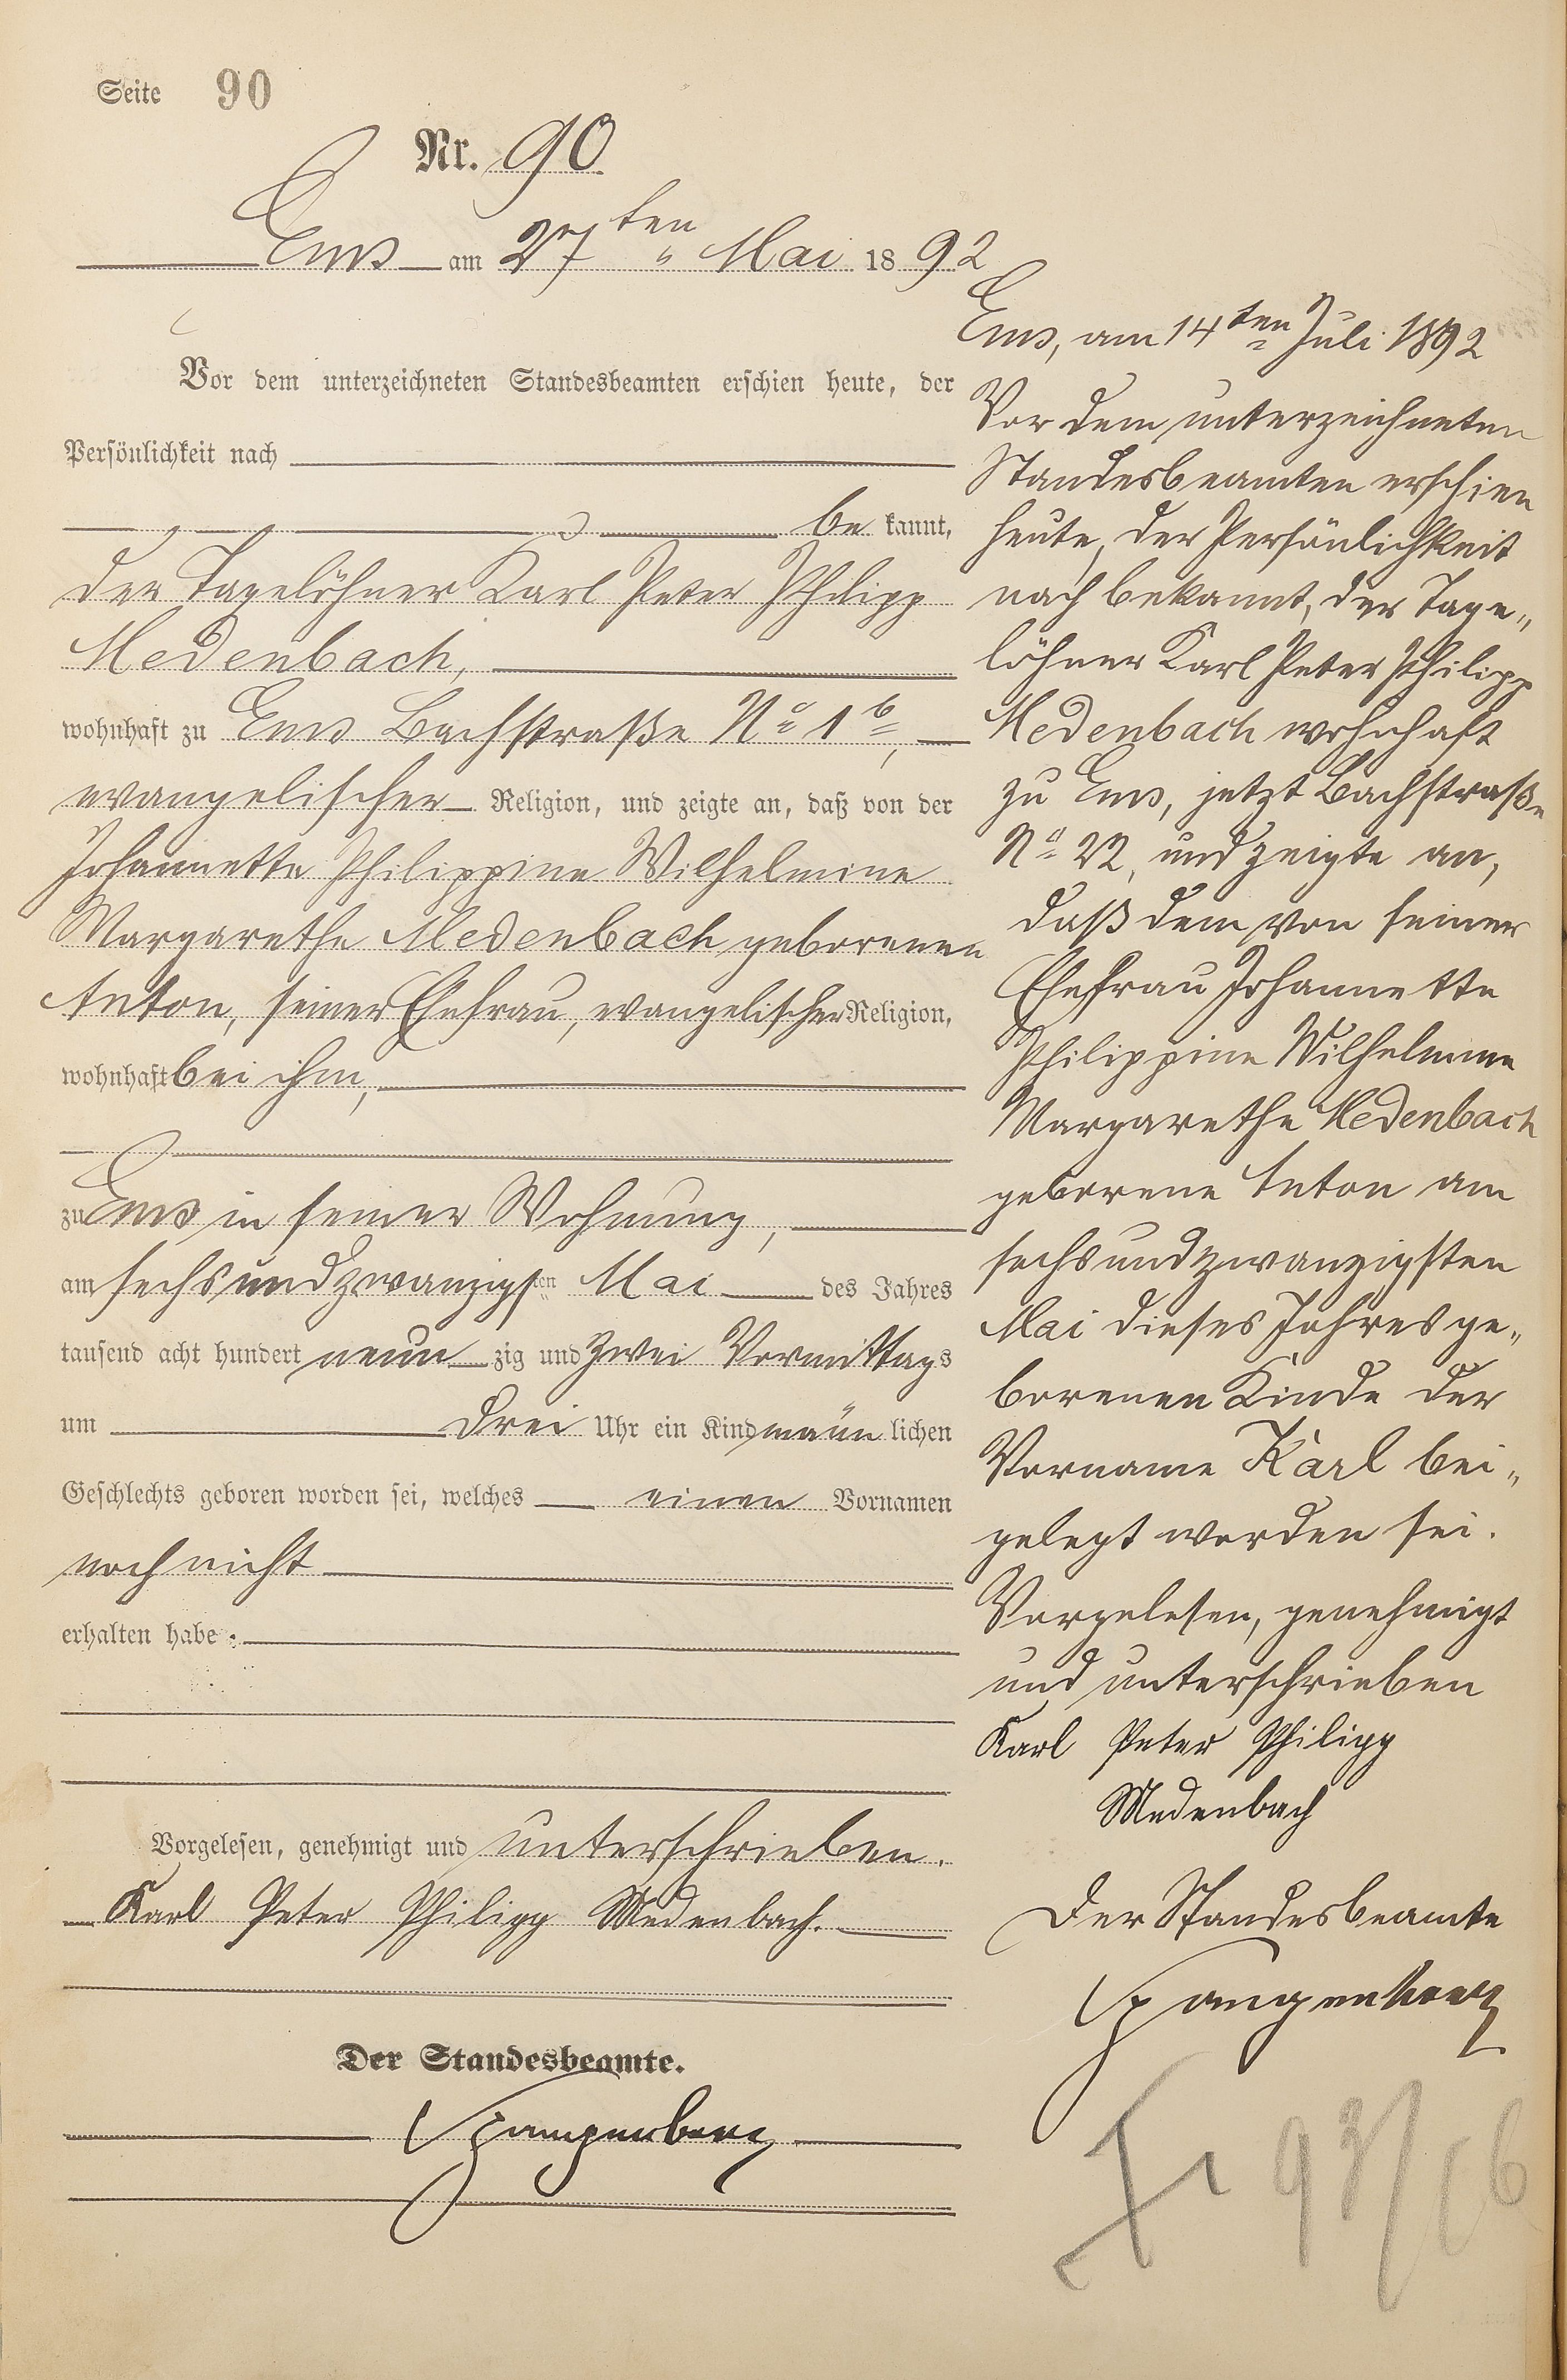 Seite 90
Nr. 90
Ems am 27ten Mai 1892
Vor dem unterzeichneten Standesbeamten erschien heute, der
Persönlichkeit nach
be kannt,
der Tagelöhner Karl Peter Philipp
Medenbach,
wohnhaft zu Ems Bachstraße No 1b,
evangelischer Religion, und zeigte an, daß von der
Johannette Philippine Wilhelmine
Margarethe Medenbach geborenen
Anton, seiner Ehefrau, evangelischer Religion,
wohnhaft bei ihm,
zu Ems in seiner Wohnung,
am sechsundzwanzigsten Mai des Jahres
tausend acht hundert neun zig und zwei Vormittags
um drei Uhr ein Kind männ lichen
Geschlechts geboren worden sei, welches einen Vornamen
noch nicht
erhalten habe.
Vorgelesen, genehmigt und unterschrieben.
Karl Peter Philipp Medenbach.
Der Standesbeamte.
Spangenberg
Ems, am 14ten Juli 1892
Vor dem unterzeichneten
Standesbeamten erschien
heute, der Persönlichkeit
nach bekannt, der Tage„
löhner Karl Peter Philipp
Medenbach wohnhaft
zu Ems, jetzt Bachstraße
No 22, und zeigte an,
daß dem von seiner
Ehefrau Johannette
Philippine Wilhelmine
Margarethe Medenbach
geborene Anton am
sechsundzwanzigsten
Mai dieses Jahres ge„
borenen Kinde der
Vorname Karl bei„
gelegt worden sei.
Vorgelesen, genehmigt
und unterschrieben
Karl Peter Philipp
Medenbach
Der Standesbeamte
Spangenberg